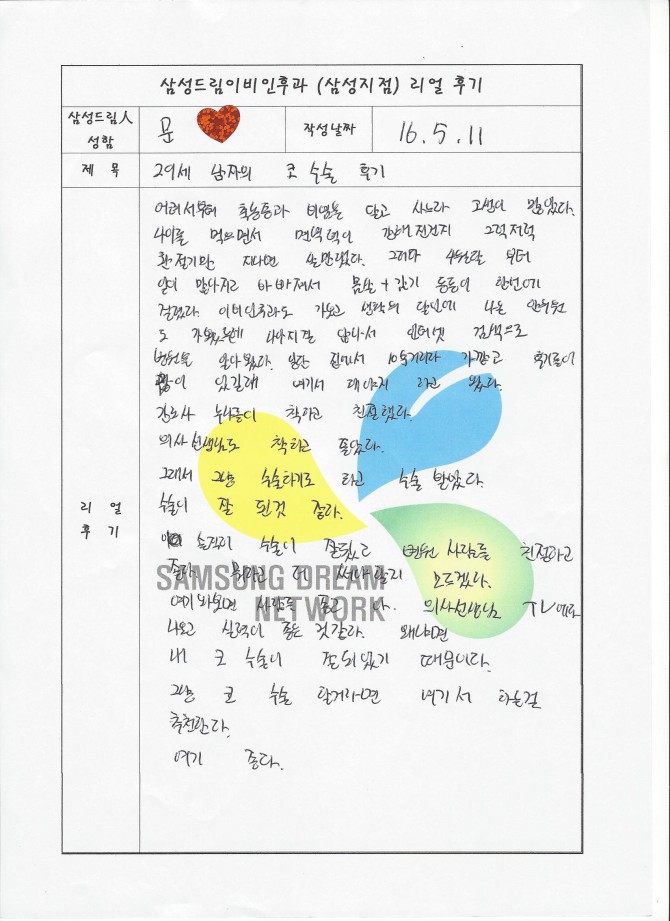 삼성드림이비인후과 (삼성지점) 리얼 후기
삼성드림人
성함
문
작성날짜
16.5.11
제 목
29세 남자의 코 수술 후기
어려서부터 축농증과 비염을 달고 사느라 고생이 많았다.
나이를 먹으면서 면역력이 강해진건지 그럭저럭
환절기만 지나면 살만했다. 그러다 4월달 부터
일이 많아지고 바빠져서 몸살 + 감기 등등이 한번에
걸렸다. 이비인후과도 가보고 번화가 달인에 나온 한의원
도 가보았는데 낫지질 않아서 인터넷 검색으로
병원을 알아봤다. 일단 집에서 10분거리라 가깝고 후기들이
많이 있길래 여기서 해야지 라고 왔다.
간호사 누나들이 착하고 친절했다.
의사선생님도 착하고 좋았다.
그래서 그냥 수술하기로 하고 수술 받았다.
수술이 잘 된것 같다.
솔직히 수술이 잘됐고 병원 사람들 친절하고
좋다. 뭐라고 더 써야할지 모르겠다.
여기 와보면 사람도 많고 의사선생님 TV에도
나오고 실력이 좋은 것같다. 왜냐면
내 코 수술이 잘되었기 때문이다.
그냥 코 수술 할거라면 여기서 하는걸
추천한다.
여기 좋다.
리 얼
후 기
SAMSUNG DREAM
NETWORK